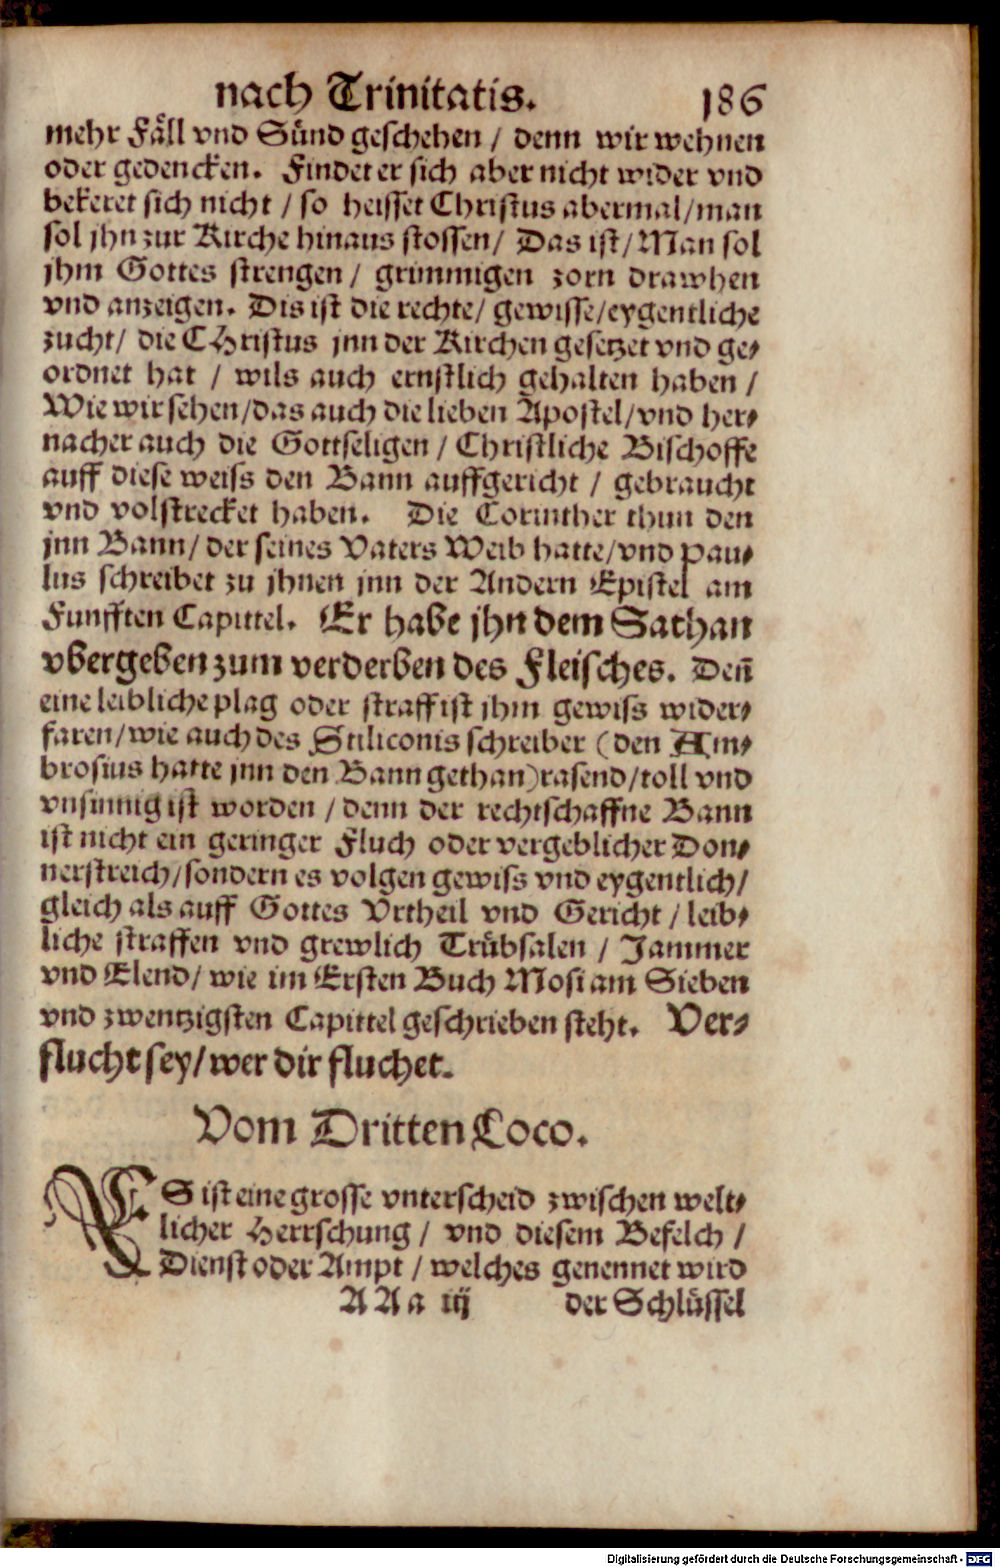 nach Trinitatis. 186
mehr Fäll vnd Sünd geschehen / denn wir wehnen
oder gedencken. Findet er sich aber nicht wider vnd
bekeret sich nicht / so heisset Christus abermal/man
sol jhn zur Kirche hinaus stossen/ Das ist/Man sol
jhm Gottes strengen / grimmigen zorn drawhen
vnd anzeigen. Dis ist die rechte/ gewisse/eygentliche
zucht/ die CHristus jnn der Kirchen gesetzet vnd ge-
ordnet hat / wils auch ernstlich gehalten haben /
Wie wir sehen/das auch die lieben Apostel/vnd her-
nacher auch die Gottseligen / Christliche Bischoffe
auff diese weiss den Bann auffgericht / gebraucht
vnd volstrecket haben. Die Corinther thun den
jnn Bann/ der seines Vaters Weib hatte/vnd Pau-
lus schreibet zu jhnen jnn der Andern Epistel am
Funfften Capittel. Er habe jhn dem Sathan
vbergeben zum verderben des Fleisches. Deñ
eine leibliche plag oder straff ist jhm gewiss wider-
faren/wie auch des Stiliconis schreiber (den Am-
brosius hatte jnn den Bann gethan)rasend/toll vnd
vnsinnig ist worden / denn der rechtschaffne Bann
ist nicht ein geringer Fluch oder vergeblicher Don-
nerstreich/sondern es volgen gewiss vnd eygentlich/
gleich als auff Gottes Vrtheil vnd Gericht / leib-
liche straffen vnd grewlich Trübsalen / Jammer
vnd Elend/ wie im Ersten Buch Mosi am Sieben
vnd zwentzigsten Capittel geschrieben steht. Ver-
flucht sey/wer dir fluchet.
Vom Dritten Loco.
ES ist eine grosse vnterscheid zwischen welt-
licher Herrschung / vnd diesem Befelch /
Dienst oder Ampt / welches genennet wird
AAa iij der Schlüssel
Digitalisierung gefördert durch die Deutsche Forschungsgemeinschaft - DFG